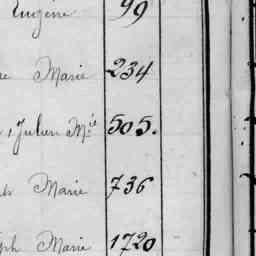 Eugène 99
Marie 234
Julien M.ie 505.
Marie 736
Marie 1720